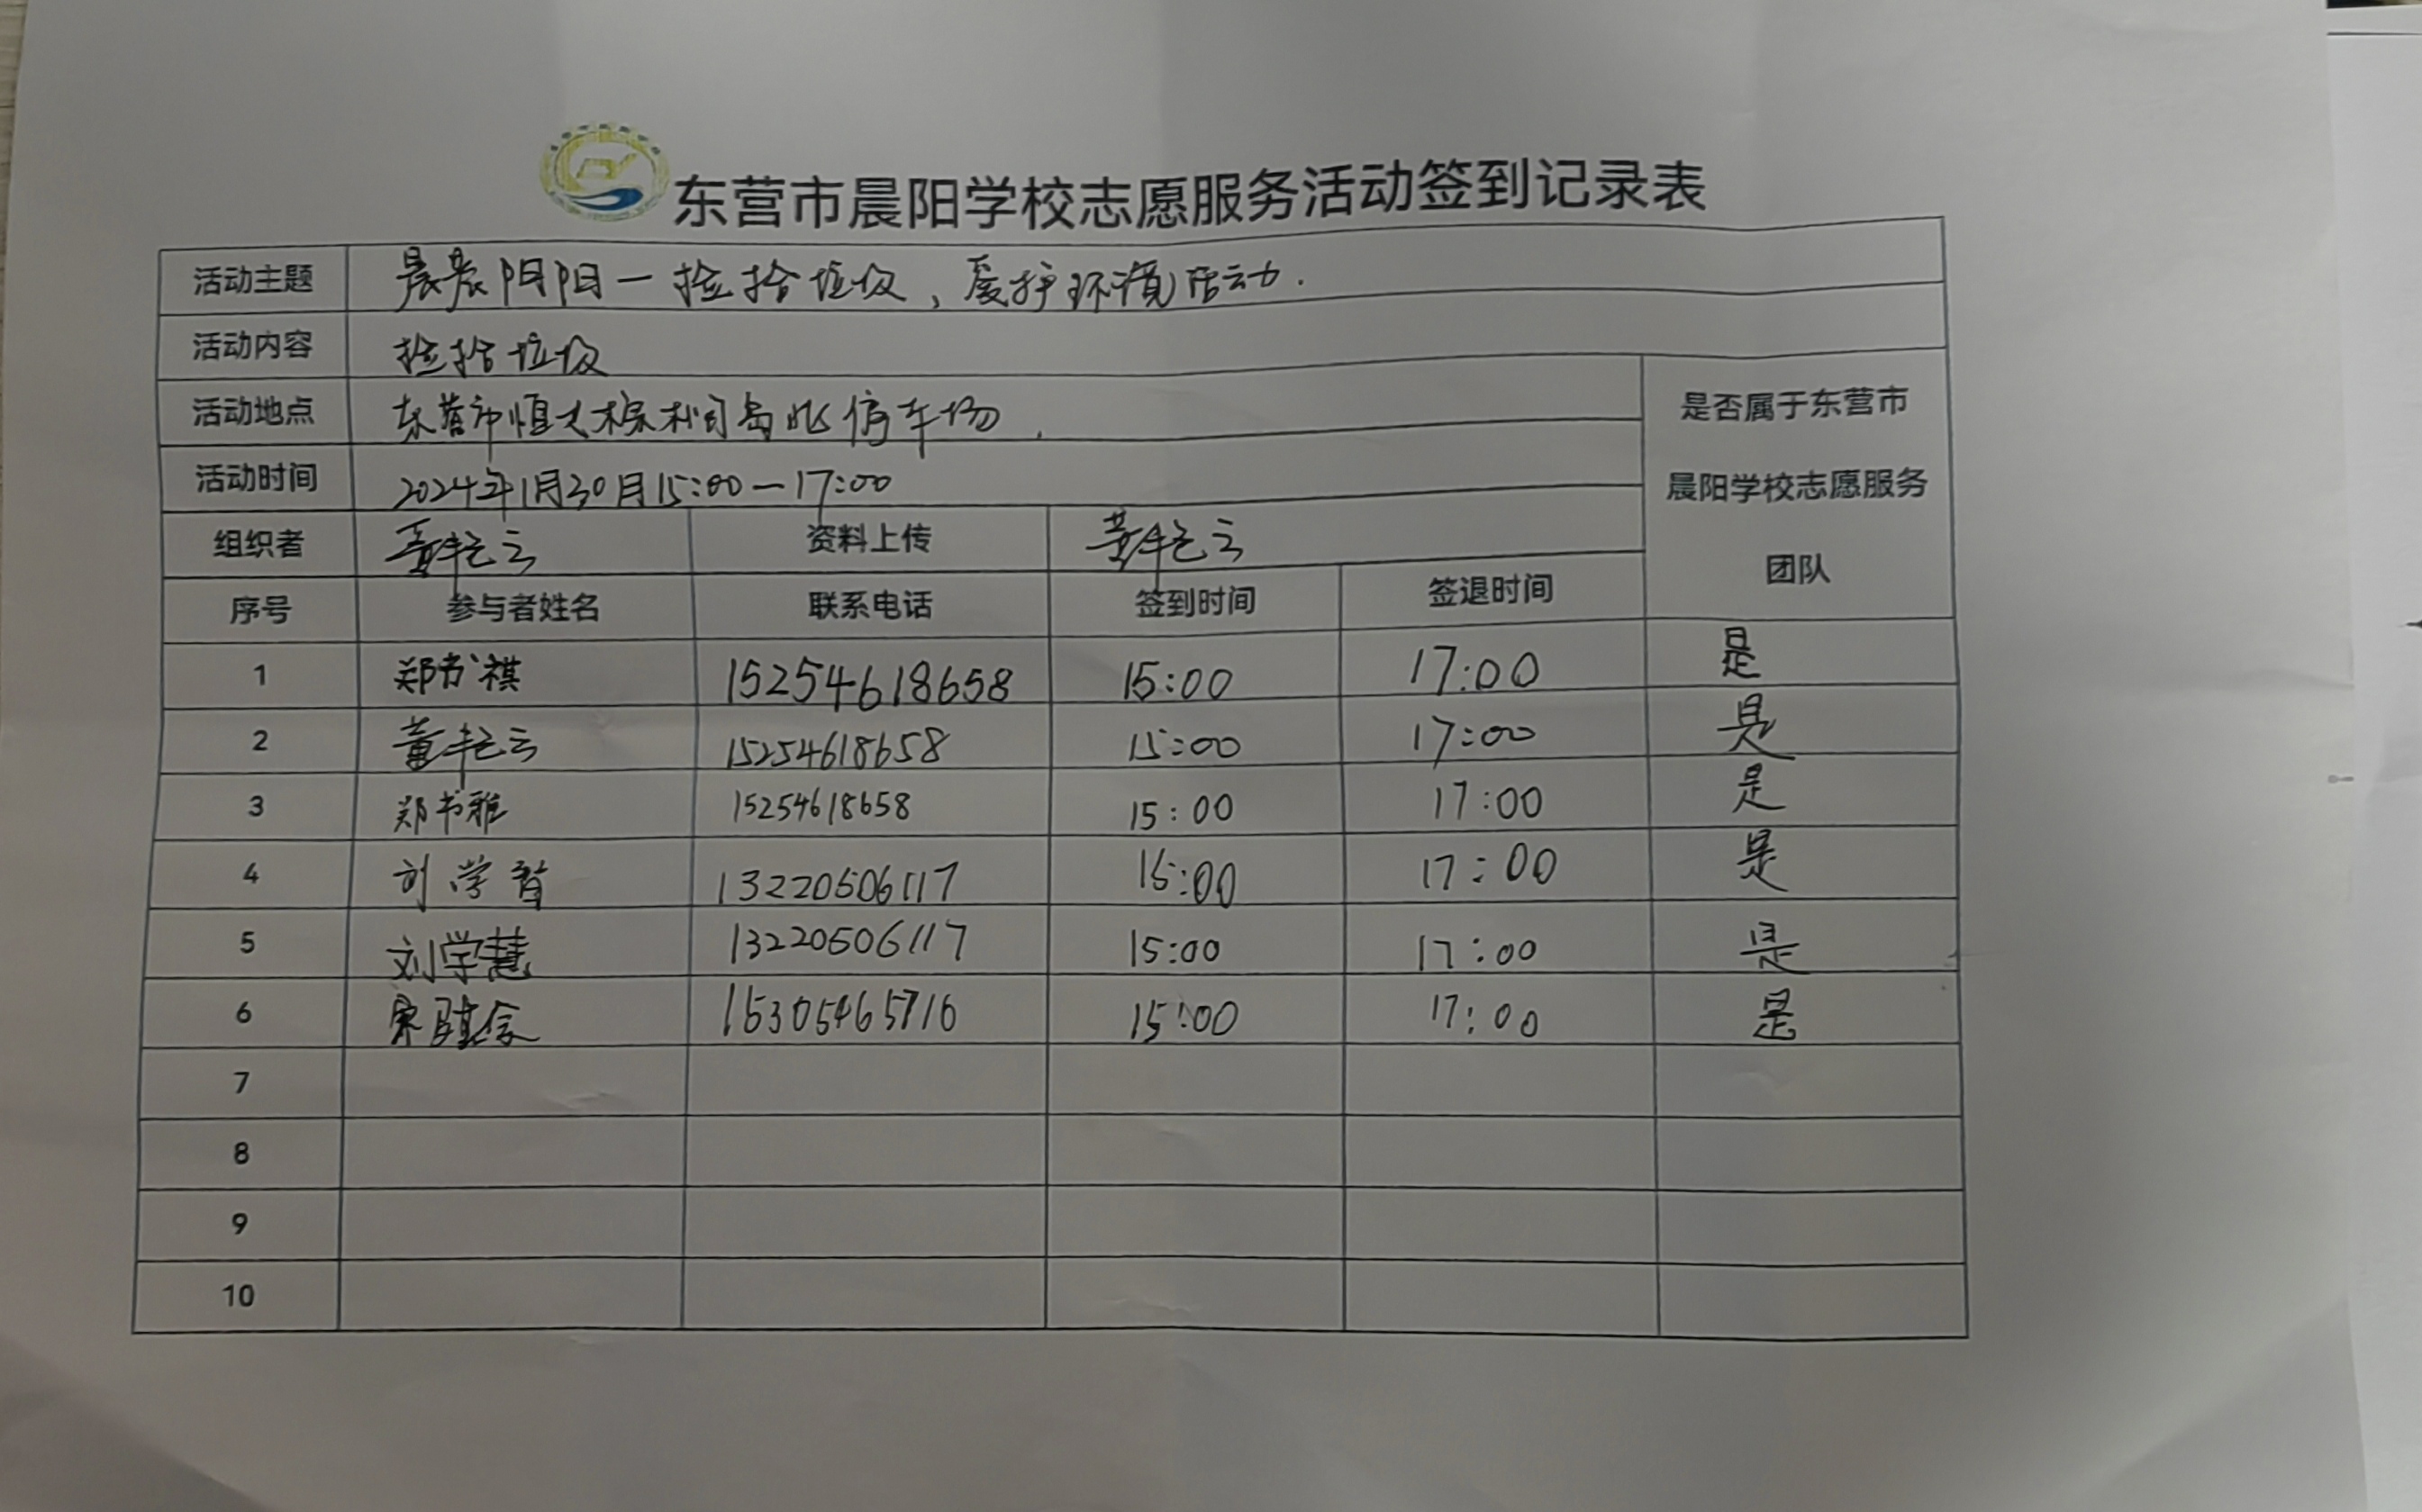 东营市晨阳学校志愿服务活动签到记录表
活动主题 晨晨阳阳一捡拾垃圾、爱护环境活动.
活动内容 捡拾垃圾
活动地点 东营市恒大棕榈岛北停车场.
活动时间 2024年1月30日15:00—17:00
是否属于东营市
晨阳学校志愿服务
团队
组织者 董艳云 资料上传 董艳云
序号 参与者姓名 联系电话 签到时间 签退时间
1 郑书祺 15254618658 15:00 17:00 是
2 董艳云 15254618658 15:00 17:00 是
3 郑书雅 15254618658 15:00 17:00 是
4 刘学智 13220506117 15:00 17:00 是
5 刘学慧 13220506117 15:00 17:00 是
6 15305465716 15:00 17:00 是
7
8
9
10